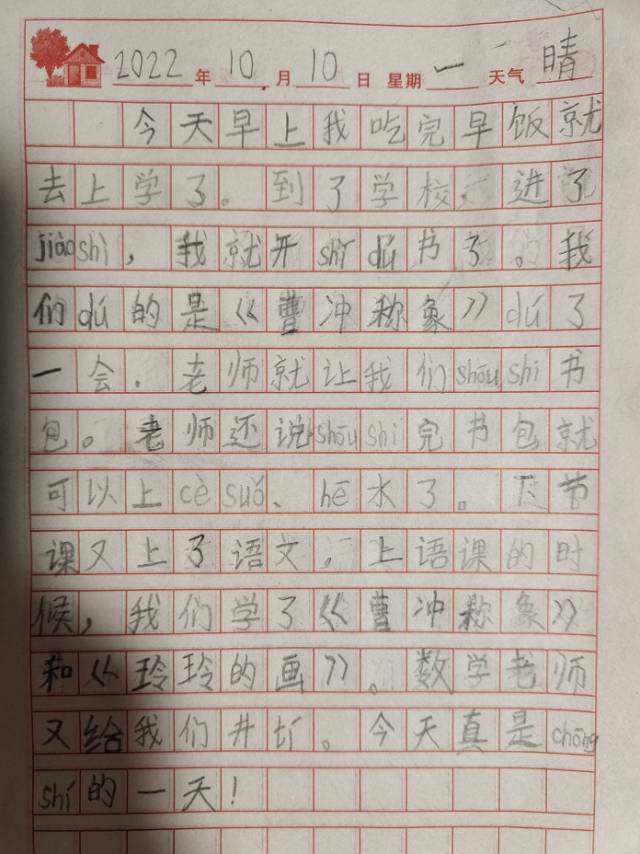 2022年10月10日 星期一 天气晴
今天早上我吃完早饭就
去上学了。到了学校，进了
jiàoshì，我就开shǐ dú书了。我
们dú的是《曹冲称象》dú了
一会．老师就让我们shōu shi书
包。老师还说shōu shi完书包就
可以上cè suǒ、hē水了。下节
课又上了语文，上语课的时
候，我们学了《曹冲称象》
和《玲玲的画》。数学老师
又给我们
。今天真是chōng
shí的一天！